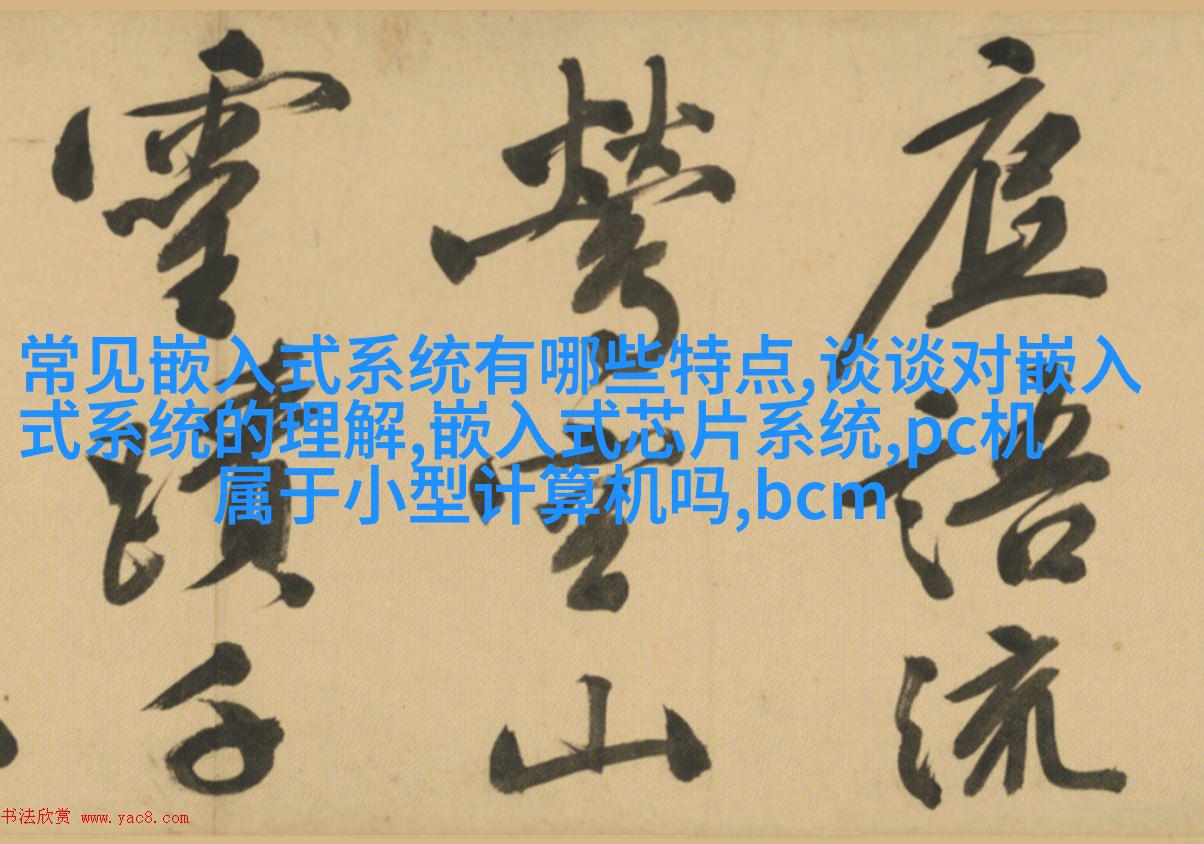 語流
鶯山
蹟千
常见嵌入式系统有哪些特点,谈谈对嵌入
式系统的理解,嵌入式芯片系统,pc机
属于小型计算机吗,bcm
书法欣赏 www.yac8.com